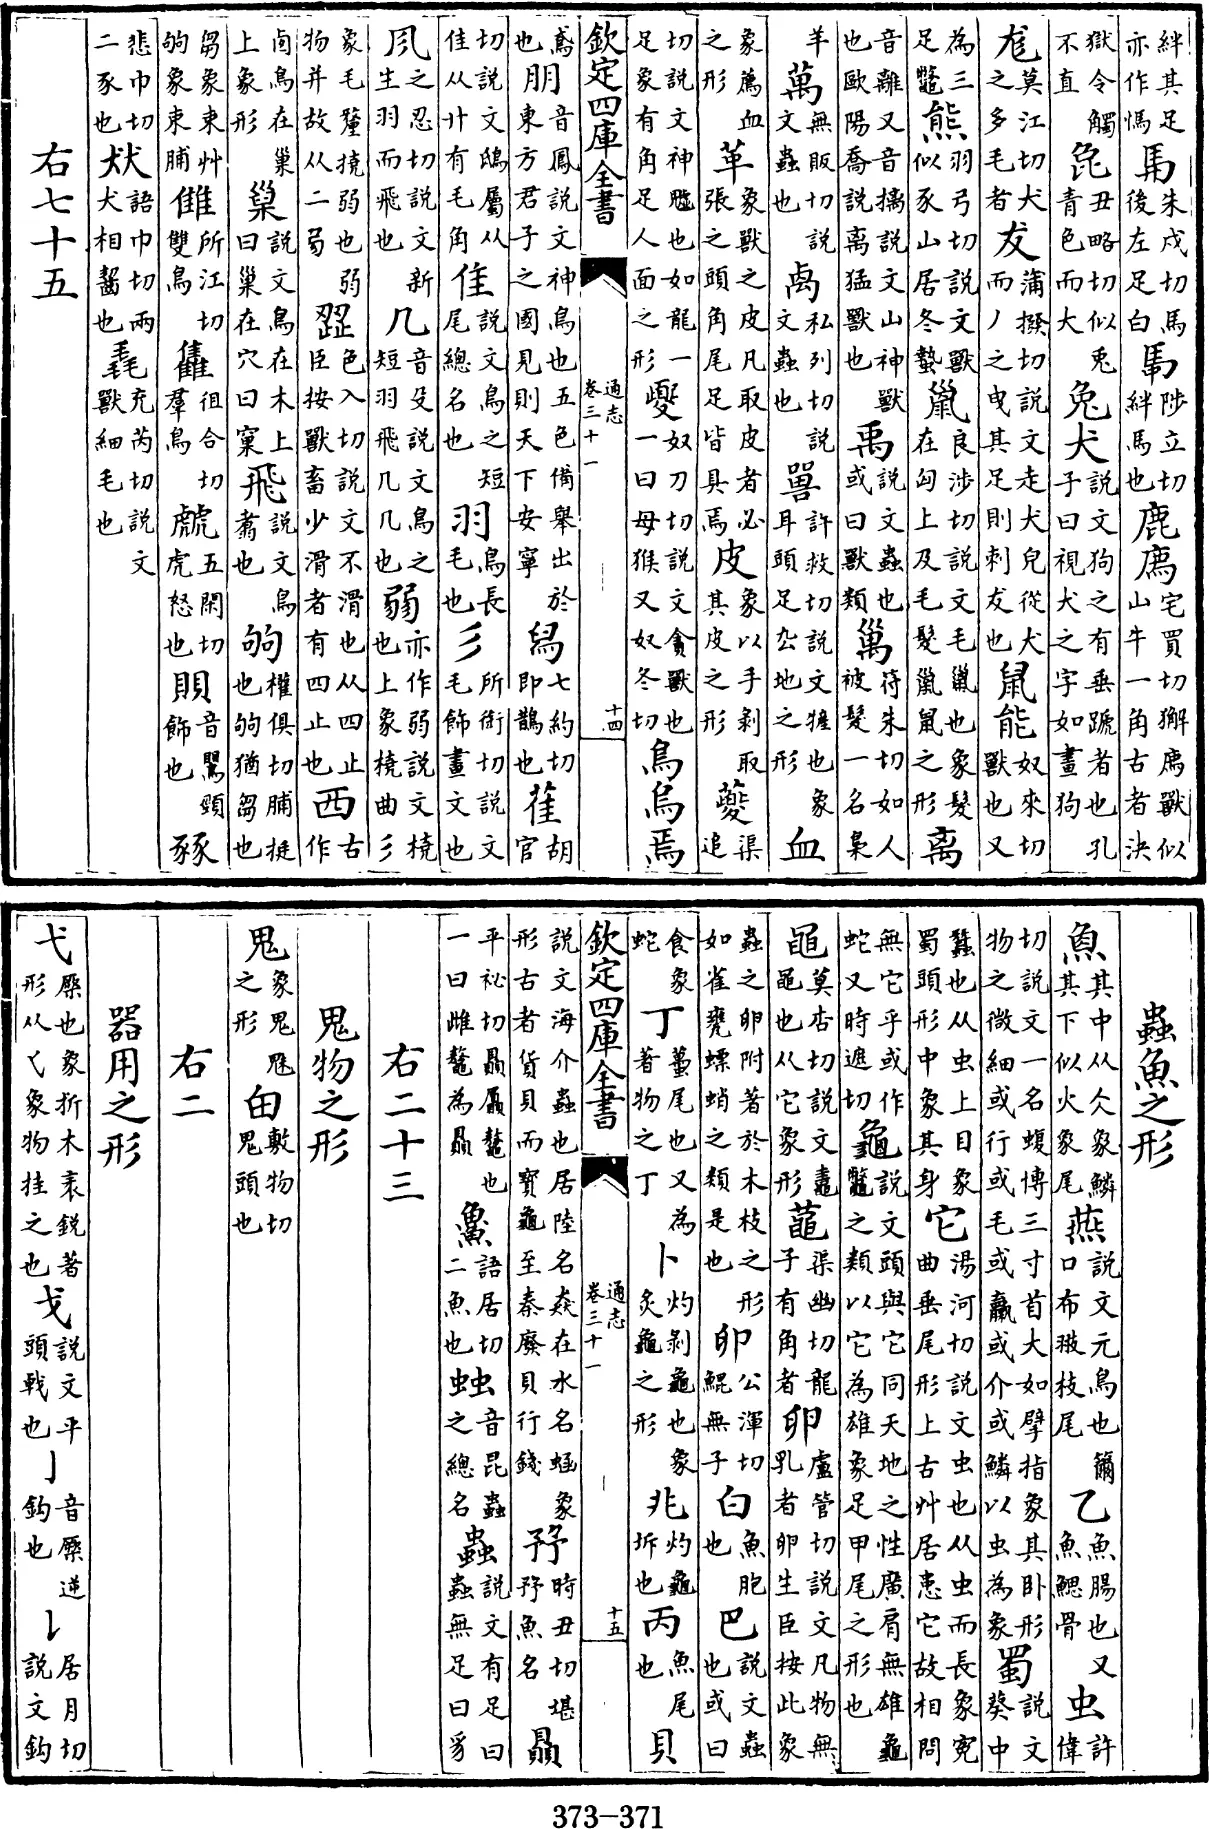 絆其足亦作馮馬朱戍切馬後左足白馽陟立切絆馬也鹿廌宅買切獬廌獸似山牛一角古者決
獄令觸不直㲋丑略切似兎青色而大兔犬説文狗之有垂蹏者也孔子曰視犬之字如畫狗
尨莫江切犬之多毛者犮蒲撥切説文走犬皃從犬而丿之曳其足則刺犮也鼠能奴來切獸也又
為三足鼈熊羽弓切説文獸似豕山居冬蟄巤良涉切説文毛巤也象髮在囟上及毛髮巤鼠之形离
音離又音摛説文山神獸也歐陽喬説离猛獸也禹説文蟲也或曰獸類萬符朱切如人被髮一名梟
羊萬無販切説文蟲也卨私列切説文蟲也嘼許救切説文㹌也象耳頭足厹地之形血
象薦血之形革象獸之皮凡取皮者必張之頭角尾足皆具焉皮象以手剥取其皮之形夔渠追
切説文神魖也如龍一足象有角足人面之形夒奴刀切説文貪獸也一曰母猴又奴冬切烏烏焉
欽定四庫全書
通志卷三十一
十四
鳶也朋音鳳説文神鳥也五色備舉出於東方君子之國見則天下安寧舄七約切即鵲也雈胡官
切説文鴟屬从隹从丱有毛角隹説文鳥之短尾總名也羽鳥長毛也彡所銜切説文毛飾畫文也
㐱之忍切説文新生羽而飛也几音殳説文鳥之短羽飛几几也弱亦作弱説文橈也上象橈曲彡
象毛氂撓弱也弱物并故从二𢎨歰色入切説文不滑也从四止臣按獸畜少滑者有四止也西古作
卣鳥在巢上象形巢説文鳥在木上曰巢在穴曰窠飛説文鳥翥也朐權俱切脯挺也朐猶芻也
芻象束艸朐象束脯雔所江切雙鳥雥徂合切羣鳥虤五閑切虎怒也賏音罌頸飾也豩
悲巾切二豕也㹜語巾切兩犬相齧也毳充芮切説文獸細毛也
右七十五
蟲魚之形
魚其中从仌象鱗其下似火象尾燕説文元鳥也籋口布翄枝尾乙魚腸也又魚鰓骨虫許偉
切説文一名蝮博三寸首大如擘指象其卧形物之微細或行或毛或蠃或介或鱗以虫為象蜀説文葵中
蠶也从虫上目象蜀頭形中象其身它湯河切説文虫也从虫而長象寃曲垂尾形上古艸居患它故相問
無它乎或作蛇又時遮切龜説文頭與它同天地之性廣肩無雄龜鼈之類以它為雄象足甲尾之形也
黽莫杏切説文鼃黽也从它象形鼀渠幽切龍子有角者卵盧管切説文凡物無乳者卵生臣按此象
蟲之卵附著於木枝之形如雀甕螵蛸之類是也卵公渾切鯤無子白魚胞也巴説文蟲也或曰
食象蛇丁蠆尾也又為著物之丁卜灼剝龜也象炙龜之形兆灼龜坼也丙魚尾也貝
欽定四庫全書
通志卷三十一
十五
説文海介蟲也居陸名猋在水名蜬象形古者貨貝而寳龜至秦廢貝行錢𩵦時丑切堪𩵦魚名贔
平祕切贔屭鼇也一曰雌鼇為贔䲆語居切二魚也䖵音昆蟲之總名蟲説文有足曰蟲無足曰豸
右二十三
鬼物之形
鬼象鬼魅之形甶敷物切鬼頭也
右二
器用之形
弋橜也象折木衺鋭著形从乀象物挂之也戈説文平頭㦸也亅音橜逆鈎也𠄌居月切説文鈎
373-371